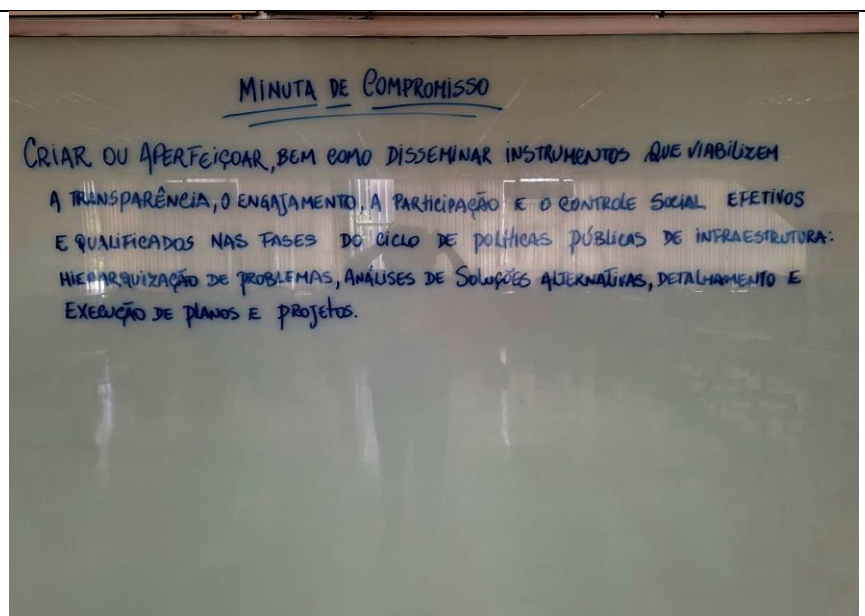 MINUTA DE COMPROMISSO
CRIAR OU APERFEIÇOAR, BEM COMO DISSEMINAR INSTRUMENTOS QUE VIABILIZEM
A TRANSPARÊNCIA, O ENGAJAMENTO, A PARTICIPAÇÃO E O CONTROLE SOCIAL EFETIVOS
E QUALIFICADOS NAS FASES DO CICLO DE POLÍTICAS PÚBLICAS DE INFRAESTRUTURA:
HIERARQUIZAÇÃO DE PROBLEMAS, ANÁLISES DE SOLUÇÕES ALTERNATIVAS, DETALHAMENTO E
EXECUÇÃO DE PLANOS E PROJETOS.